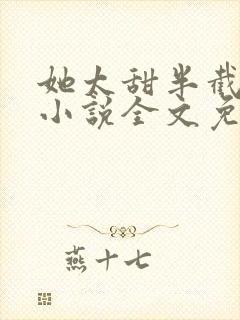 她太甜半截
小说全文免
燕十七